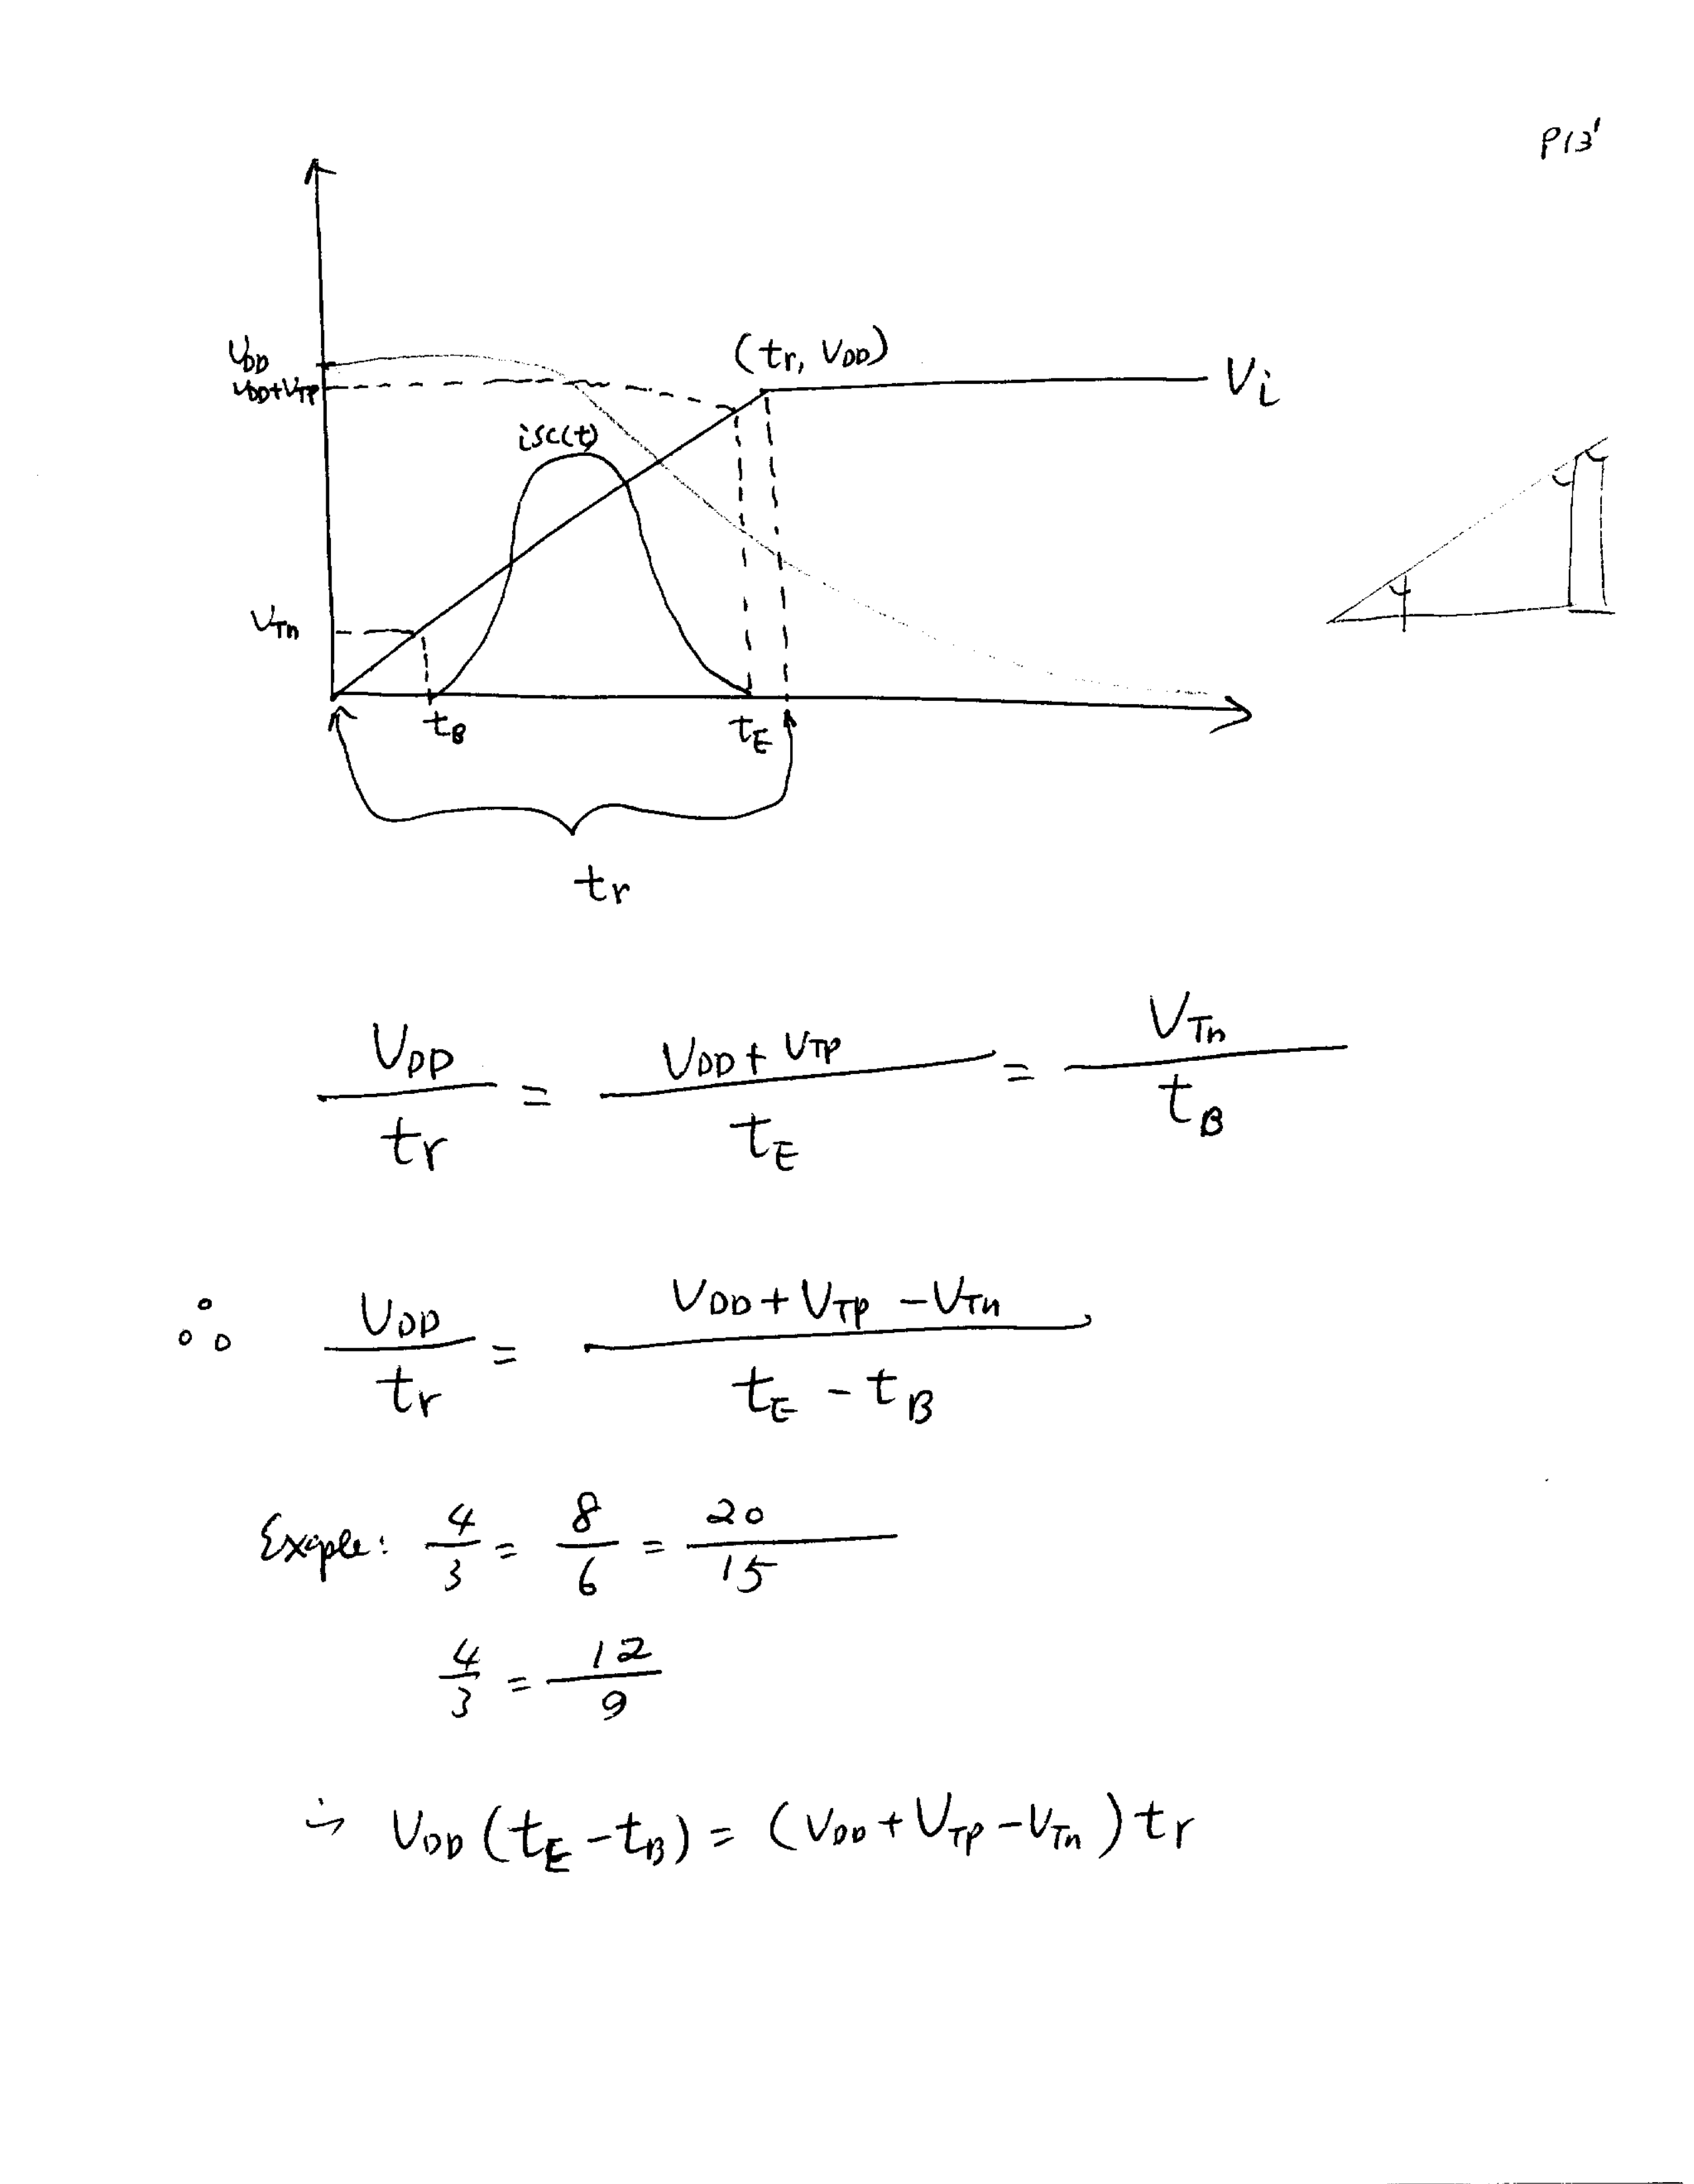 P13'
(tr, VDD)
VDD
VDD+VTP
Vi
isc(t)
VTn
tB tE
tr
VDD/tr = VDD+VTP/tE = VTn/tB
∴ VDD/tr = VDD+VTP-VTn/tE-tB
Exaple: 4/3 = 8/6 = 20/15
4/3 = 12/9
VDD(tE-tB) = (VDD+VTP-VTn)tr